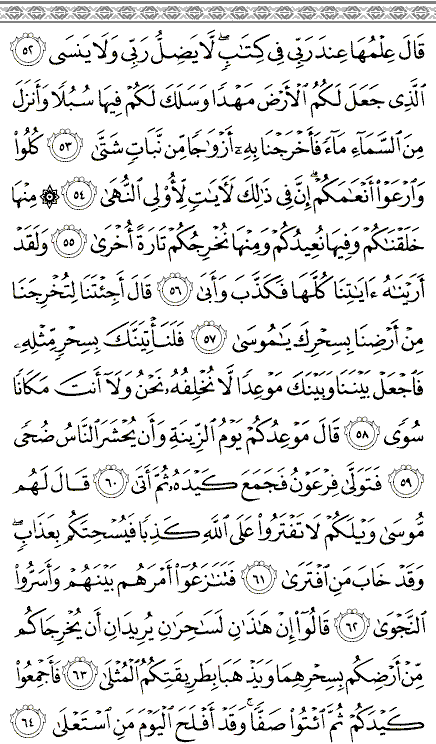 قَالَ عِلْمُهَا عِندَ رَبِّي فِي كِتَٰبٍۖ لَّا يَضِلُّ رَبِّي وَلَا يَنسَى ۝٥٢
ٱلَّذِي جَعَلَ لَكُمُ ٱلْأَرْضَ مَهْدًا وَسَلَكَ لَكُمْ فِيهَا سُبُلًا وَأَنزَلَ
مِنَ ٱلسَّمَآءِ مَآءً فَأَخْرَجْنَا بِهِۦٓ أَزْوَٰجًا مِّن نَّبَاتٍ شَتَّىٰ ۝٥٣ كُلُوا۟
وَٱرْعَوْا۟ أَنْعَٰمَكُمْۗ إِنَّ فِي ذَٰلِكَ لَأٓيَٰتٍ لِّأُو۟لِي ٱلنُّهَىٰ ۝٥٤ ۞ مِنْهَا
خَلَقْنَٰكُمْ وَفِيهَا نُعِيدُكُمْ وَمِنْهَا نُخْرِجُكُمْ تَارَةً أُخْرَىٰ ۝٥٥ وَلَقَدْ
أَرَيْنَٰهُ ءَايَٰتِنَا كُلَّهَا فَكَذَّبَ وَأَبَىٰ ۝٥٦ قَالَ أَجِئْتَنَا لِتُخْرِجَنَا
مِنْ أَرْضِنَا بِسِحْرِكَ يَٰمُوسَىٰ ۝٥٧ فَلَنَأْتِيَنَّكَ بِسِحْرٍ مِّثْلِهِۦ
فَٱجْعَلْ بَيْنَنَا وَبَيْنَكَ مَوْعِدًا لَّا نُخْلِفُهُۥ نَحْنُ وَلَآ أَنتَ مَكَانًا
سُوًى ۝٥٨ قَالَ مَوْعِدُكُمْ يَوْمُ ٱلزِّينَةِ وَأَن يُحْشَرَ ٱلنَّاسُ ضُحًى
۝٥٩ فَتَوَلَّىٰ فِرْعَوْنُ فَجَمَعَ كَيْدَهُۥ ثُمَّ أَتَىٰ ۝٦٠ قَالَ لَهُم
مُّوسَىٰ وَيْلَكُمْ لَا تَفْتَرُوا۟ عَلَى ٱللَّهِ كَذِبًا فَيُسْحِتَكُم بِعَذَابٍۖ
وَقَدْ خَابَ مَنِ ٱفْتَرَىٰ ۝٦١ فَتَنَٰزَعُوٓا۟ أَمْرَهُم بَيْنَهُمْ وَأَسَرُّوا۟
ٱلنَّجْوَىٰ ۝٦٢ قَالُوٓا۟ إِنْ هَٰذَٰنِ لَسَٰحِرَٰنِ يُرِيدَانِ أَن يُخْرِجَاكُم
مِّنْ أَرْضِكُم بِسِحْرِهِمَا وَيَذْهَبَا بِطَرِيقَتِكُمُ ٱلْمُثْلَىٰ ۝٦٣ فَأَجْمِعُوا۟
كَيْدَكُمْ ثُمَّ ٱئْتُوا۟ صَفًّاۚ وَقَدْ أَفْلَحَ ٱلْيَوْمَ مَنِ ٱسْتَعْلَىٰ ۝٦٤